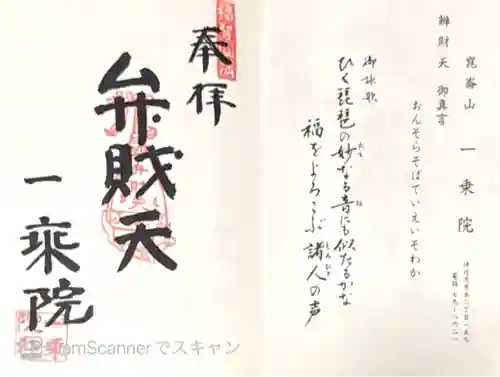 崑崙山 一乗院
辨財天 御真言
おんそらそばていえいそわか
御詠歌
ひく琵琶の妙なる音にも似たるかな
福をよろこぶ諸人の声
奉拝
弁財天
一乗院
CamScannerでスキャン